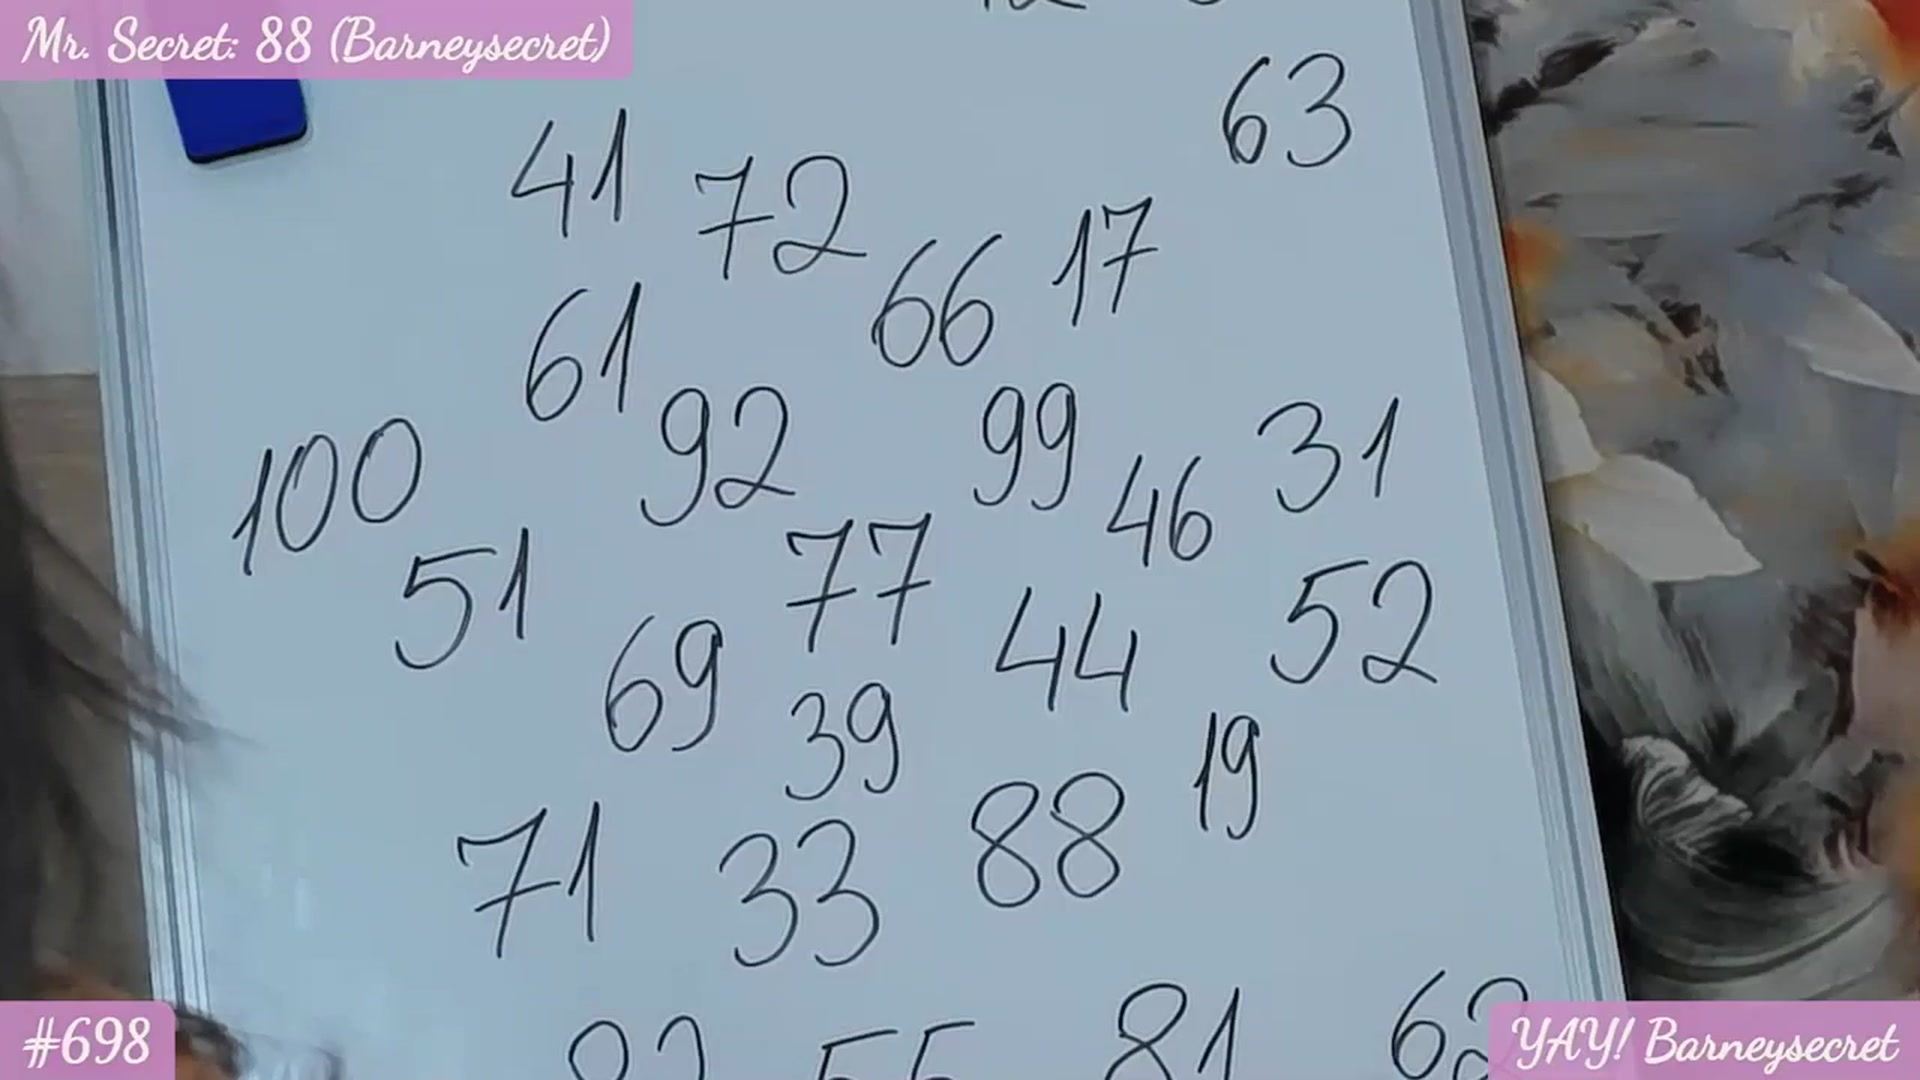 Mr. Secret: 88 (Barneysecret)
63
41
72
17
66
61
92
99
31
100
46
77
51
52
44
69
39
19
88
71
33
81
#698
YAY! Barneysecret